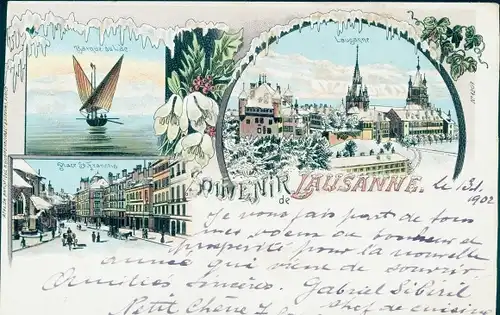 Barque du Lac
Lausanne
Place St François
SOUVENIR
de
LAUSANNE.
le 1.I.
1902
Je vous fais part de tous
mes voeux de bonheur et
prospérité pour la nouvelle
année qui vient de s'ouvrir
Amitiés sincères. Gabriel Sibiril
Petit Chêne chef de cuisine